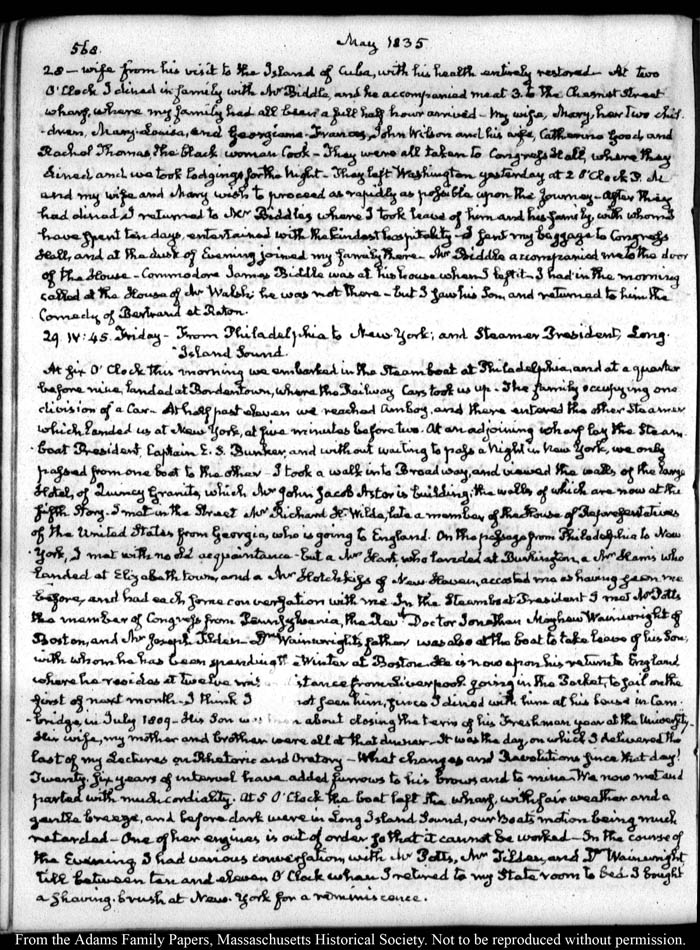 568 May 1835
28 — wife from his visit to the Island of Cuba, with his health entirely restored — At two
O'Clock I dined in family with Mr Biddle, and he accompanied me at 3. to the Chesnut Street
wharf, where my family had all been a full half hour arrived — My wife, Mary, her two chil-
-dren, Mary-Louisa, and Georgiana-Frances, John Wilson and his wife, Catherine Good and
Rachel Thomas, the black woman Cook — They were all taken to Congress Hall, where they
dined and we took lodgings for the Night — They left Washington yesterday at 2 O'Clock P. M
and my wife and Mary wish to proceed as rapidly as possible upon the Journey — After they
had dined I returned to Mr Biddles where I took leave of him and his family, with whom I
have spent ten days, entertained with the kindest hospitality — I sent my baggage to Congress
Hall, and at the dusk of Evening joined my family there — Mr Biddle accompanied me to the door
of the House — Commodore James Biddle was at his house when I left it — I had in the morning
called at the House of Mr Walsh; he was not there — but I saw his Son, and returned to him the
Comedy of Bertrand et Raton.
29. IV: 45. Friday — From Philadelphia to New York; and Steamer President, Long-
Island Sound.
At six O'Clock this morning we embarked in the Steamboat at Philadelphia, and at a quarter
before nine, landed at Bordentown, where the Railway Cars took us up — The family occupying one
division of a Car — At half past eleven we reached Amboy, and there entered the other Steamer
which landed us at New York, at five minutes before two. At an adjoining wharf lay the Steam-
-boat President, Captain E. S. Bunker, and without waiting to pass a Night in New York, we only
passed from one boat to the other — I took a walk into Broadway, and viewed the walls of the large
Hotel, of Quincy Granite, which Mr John Jacob Astor is building; the walls of which are now at the
fifth Story. I met in the Street Mr Richard H. Wilde, late a member of the House of Representatives
of the United States from Georgia, who is going to England. On the passage from Philadelphia to New
York, I met with no old acquaintance — but a Mr Hart, who landed at Burlington, a Mr Harris who
landed at Elizabeth town, and a Mr Hotchkiss of New Haven, accosted me as having seen me
before, and had each some conversation with me. In the Steamboat President I met Mr Potts
the member of Congress from Pennsylvania, the Revd Doctor Jonathan Mayhew Wainwright of
Boston, and Mr Joseph Tilden — Dr Wainwright's father was also at the boat to take leave of his Son;
with whom he has been spending Winter at Boston. He is now upon his return to England
where he resides at twelve distance from Liverpool going in the Packet, to sail on the
first of next month — I think I not seen him, since I dined with him at his house in Cam-
-bridge, in July 1809 — His Son was then about closing the term of his Freshman year at the University.
His wife, my mother and brother were all at that dinner — It was the day, on which I delivered the
last of my Lectures on Rhetoric and Oratory — What changes and Revolutions since that day!
Twenty-six years of interval have added furrows to his brows and to mine — We now met and
parted with much cordiality. At 5 O'Clock the boat left the wharf, with fair weather and a
gentle breeze, and before dark were in Long Island Sound, our boats motion being much
retarded — One of her engines is out of order so that it cannot be worked — In the course of
the Evening I had various conversation, with Mr Potts, Mr Tilden, and Dr Wainwright,
till between ten and eleven O'Clock when I retired to my State room to bed. I bought
a shaving-brush at New-York for a reminiscence.
From the Adams Family Papers, Massachusetts Historical Society. Not to be reproduced without permission